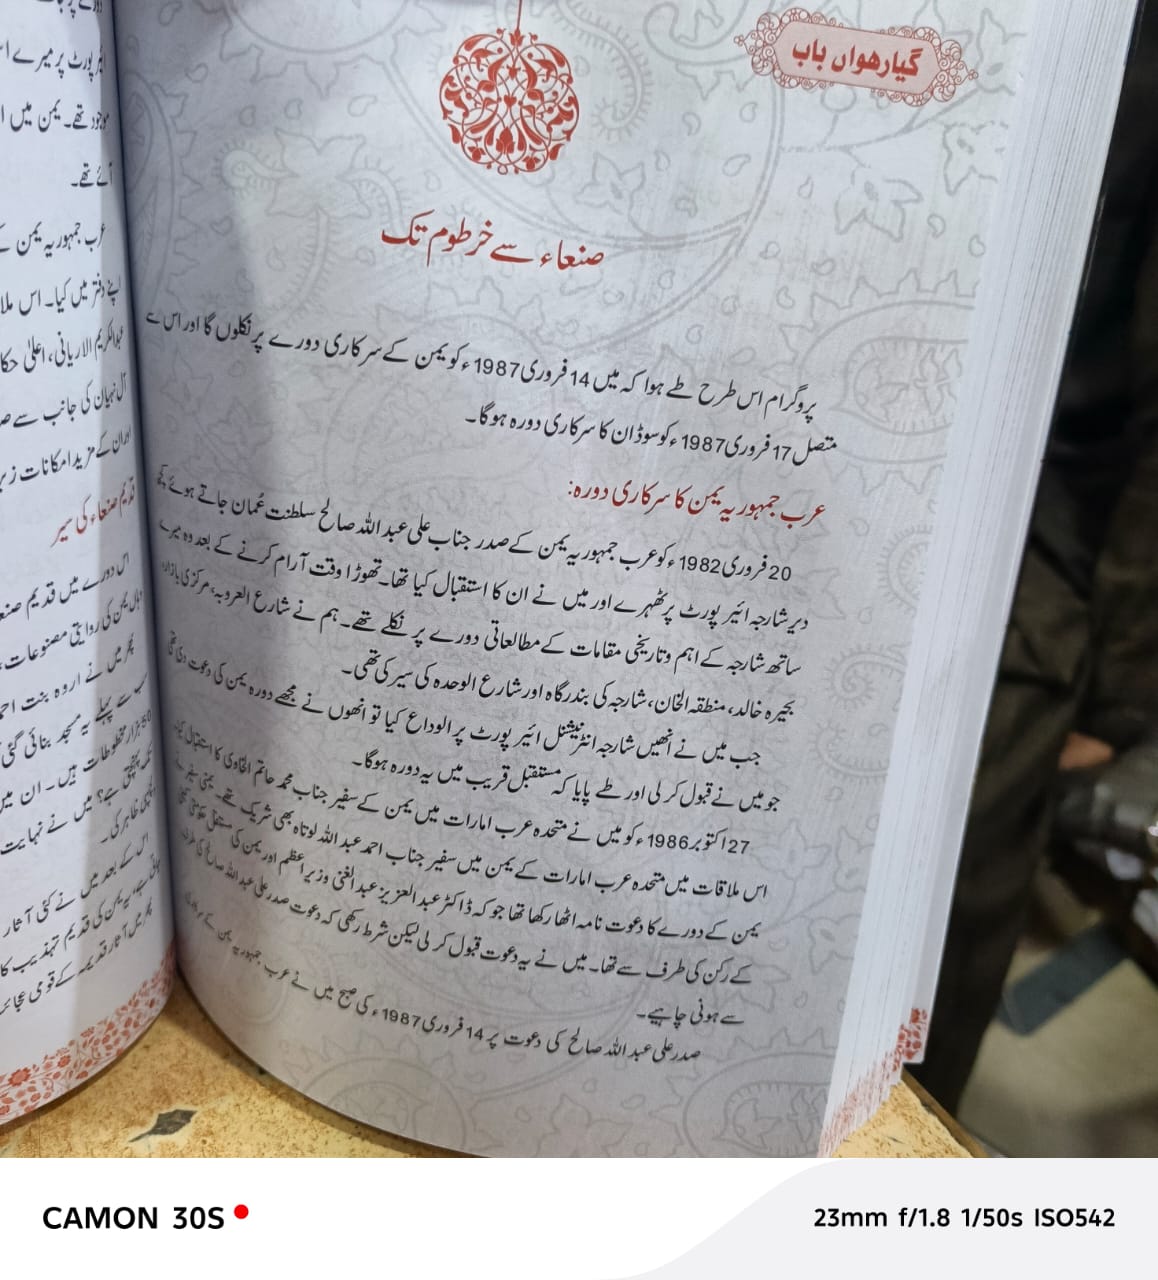 گیارھواں باب
صنعاء سے خرطوم تک
پروگرام اس طرح طے ہوا کہ میں 14 فروری 1987ء کو یمن کے سرکاری دورے پر نکلوں گا اور اس سے
متصل 17 فروری 1987ء کو سوڈان کا سرکاری دورہ ہوگا۔
عرب جمہوریہ یمن کا سرکاری دورہ:
20 فروری 1982ء کو عرب جمہوریہ یمن کے صدر جناب علی عبد اللہ صالح سلطنت عُمان جاتے ہوئے کچھ
دیر شارجہ ائیر پورٹ پر ٹھہرے اور میں نے ان کا استقبال کیا تھا۔ تھوڑا وقت آرام کرنے کے بعد وہ میرے
ساتھ شارجہ کے اہم و تاریخی مقامات کے مطالعاتی دورے پر نکلے تھے۔ ہم نے شارع العروبہ، مرکزی بازار،
بحیرہ خالد، منطقہ الخان، شارجہ کی بندرگاہ اور شارع الوحدہ کی سیر کی تھی۔
جب میں نے انھیں شارجہ انٹرنیشنل ائیر پورٹ پر الوداع کیا تو انھوں نے مجھے دورہ یمن کی دعوت دی تھی
جو میں نے قبول کر لی اور طے پایا کہ مستقبل قریب میں یہ دورہ ہوگا۔
27 اکتوبر 1986ء کو میں نے متحدہ عرب امارات میں یمن کے سفیر جناب محمد حاتم الخاوی کا استقبال کیا۔
اس ملاقات میں متحدہ عرب امارات کے یمن میں سفیر جناب احمد عبد اللہ لوتاہ بھی شریک تھے۔ یمنی سفیر نے
یمن کے دورے کا دعوت نامہ اٹھا رکھا تھا جو کہ ڈاکٹر عبد العزیز عبد الغنی وزیر اعظم اور یمن کی مستقل
کے رکن کی طرف سے تھا۔ میں نے یہ دعوت قبول کر لی لیکن شرط رکھی کہ دعوت صدر علی عبد اللہ صالح کی طرف
سے ہونی چاہیے۔
صدر علی عبد اللہ صالح کی دعوت پر 14 فروری 1987ء کی صبح میں نے عرب جمہوریہ یمن کے
پورٹ پر میرے
موجود تھے۔ یمن میں
آئے تھے۔
عرب جمہوریہ یمن کے
اپنے دفتر میں کیا۔ اس
عبدالکریم الاریانی، اعلیٰ
آل نہیان کی جانب سے
اور ان کے مزید امکانات
قدیم صنعاء کی سیر
اس دورے میں قدیم
وہاں یمن کی روایتی مصنوعات،
پھر میں نے اروہ بنت
سب سے پہلے یہ مسجد بنائی گئی
ہزار مخطوطات ہیں۔ ان میں
میں نے نہایت
ظاہر کی۔
اس کے بعد میں نے کئی آثار
یمن کی قدیم تہذیب کا
آثار قدیمہ کے قومی عجائب
CAMON 30S
23mm f/1.8 1/50s ISO542